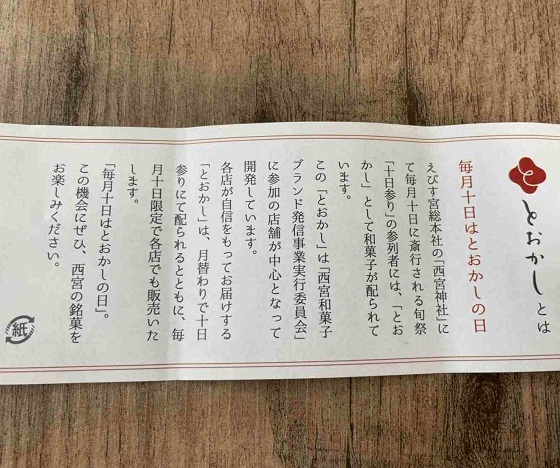 とおかしとは
毎月十日はとおかしの日
えびす宮総本社の「西宮神社」に
て毎月十日に斎行される旬祭
「十日参り」の参列者には、「とお
かし」として和菓子が配られて
います。
この「とおかし」は「西宮和菓子
ブランド発信事業実行委員会」
に参加の店舗が中心となって
開発しています。
各店が自信をもってお届けする
「とおかし」は、月替わりで十日
参りにて配られるとともに、毎
月十日限定で各店でも販売いた
します。
「毎月十日はとおかしの日」。
この機会にぜひ、西宮の銘菓を
お楽しみください。
紙